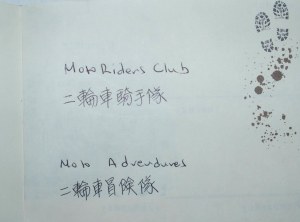 Moto Riders Club
二輪車騎手隊
Moto Advendures
二輪車冒険隊